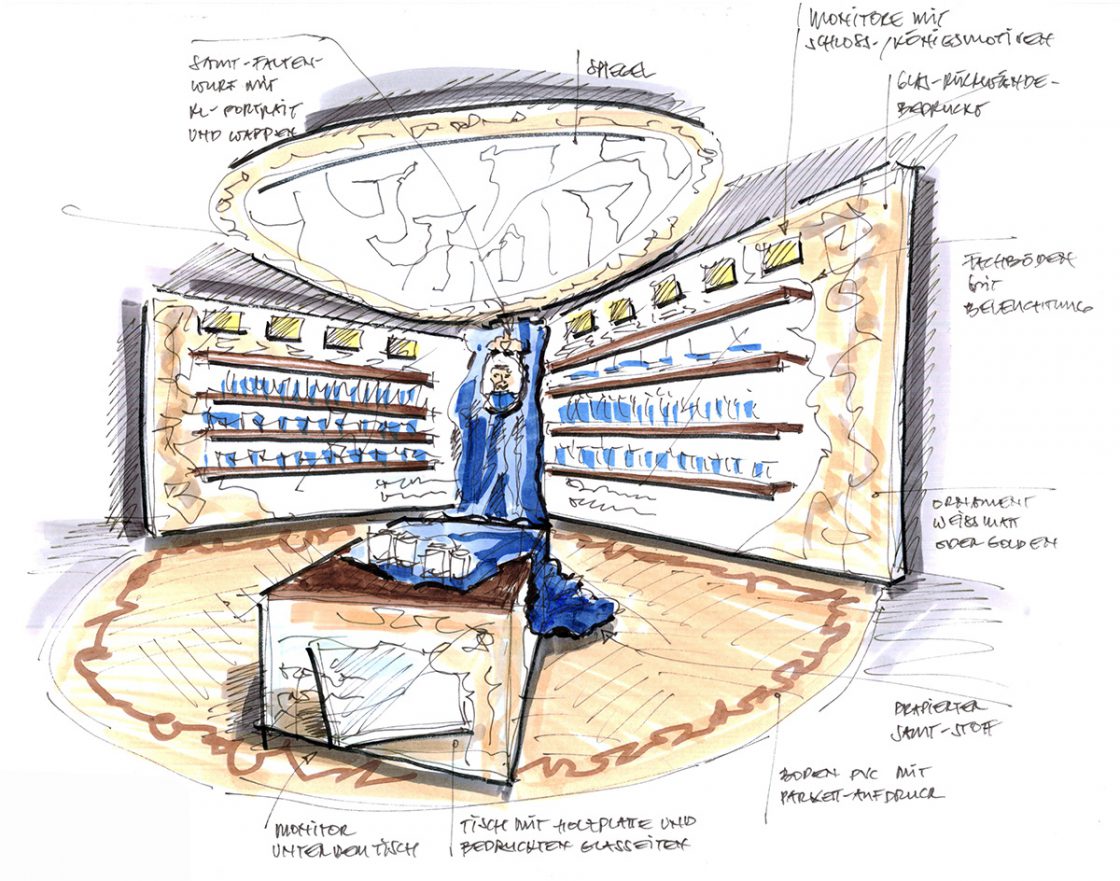 SAMT-FALTEN-
WURF MIT
KL-PORTRAIT
UND WAPPEN
SPIEGEL
MONITORE MIT
SCHLOSS-/KÖNIGSMOTIVEN
GLAS-RÜCKWÄNDE-
BEDRUCKT
FACHBÖDEN
MIT
BELEUCHTUNG
ORNAMENT
WEISS MATT
ODER GOLDEN
DRAPIERTER
SAMT-STOFF
BODEN PVC MIT
PARKETT-AUFDRUCK
TISCH MIT HOLZPLATTE UND
BEDRUCKTEN GLASSEITEN
MONITOR
UNTER DEM TISCH